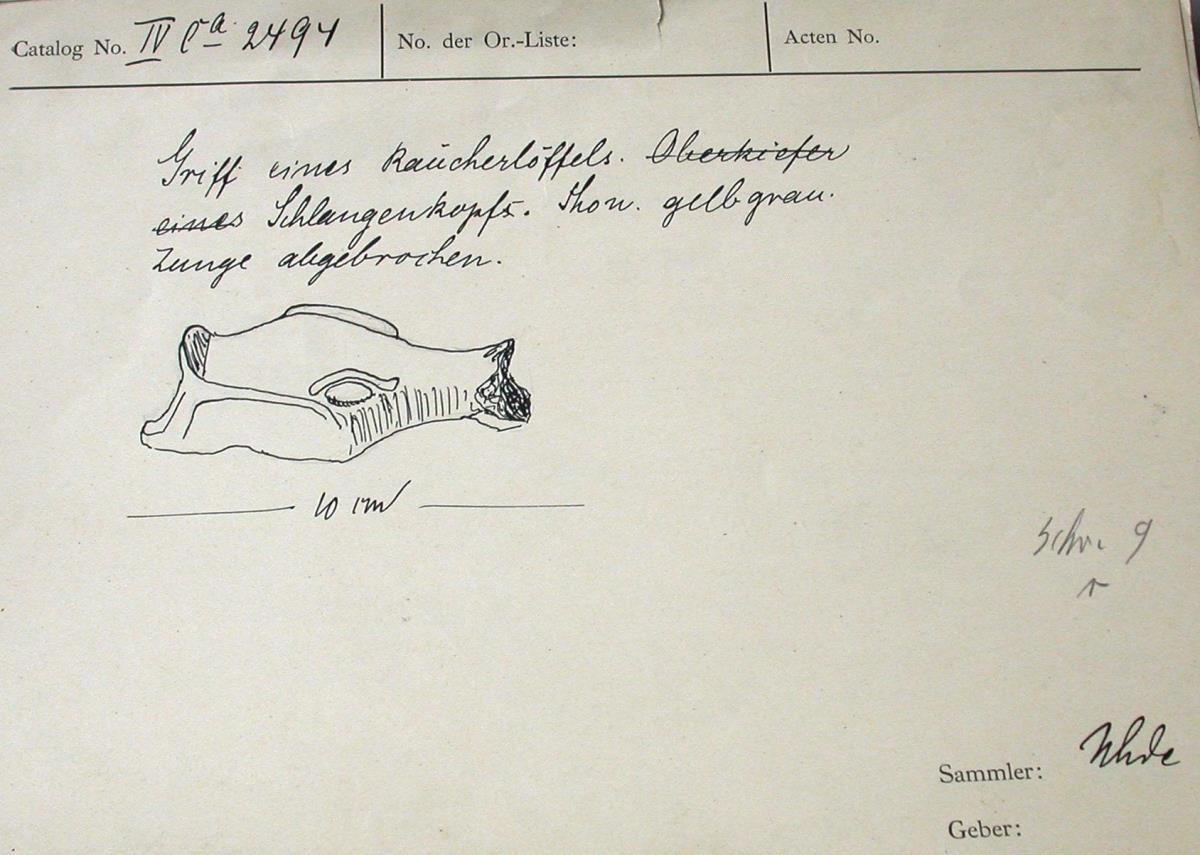 Catalog No. IV Ca 2494
No. der Or.-Liste:
Acten No.
Griff eines Räucherlöffels. Oberkiefer
eines Schlangenkopfs. Thon. gelbgrau.
Zunge abgebrochen.
10 cm
Schr. 9
r
Sammler: Uhde
Geber: